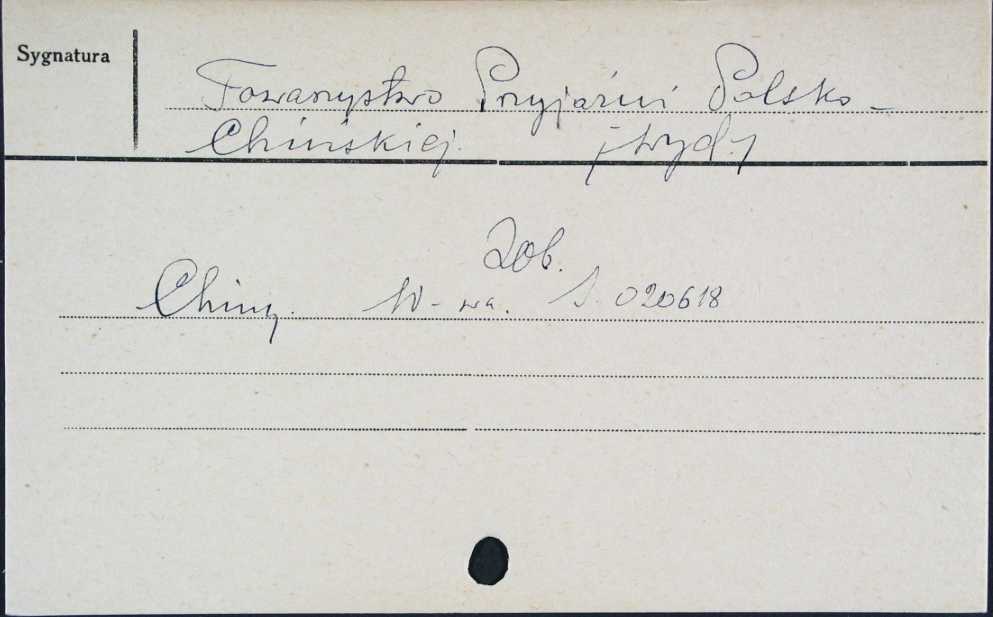 Sygnatura
Towarzystwo Przyjaźni Polsko-
Chińskiej. /wyd./
Zob.
Chiny. W-wa. S. 020618